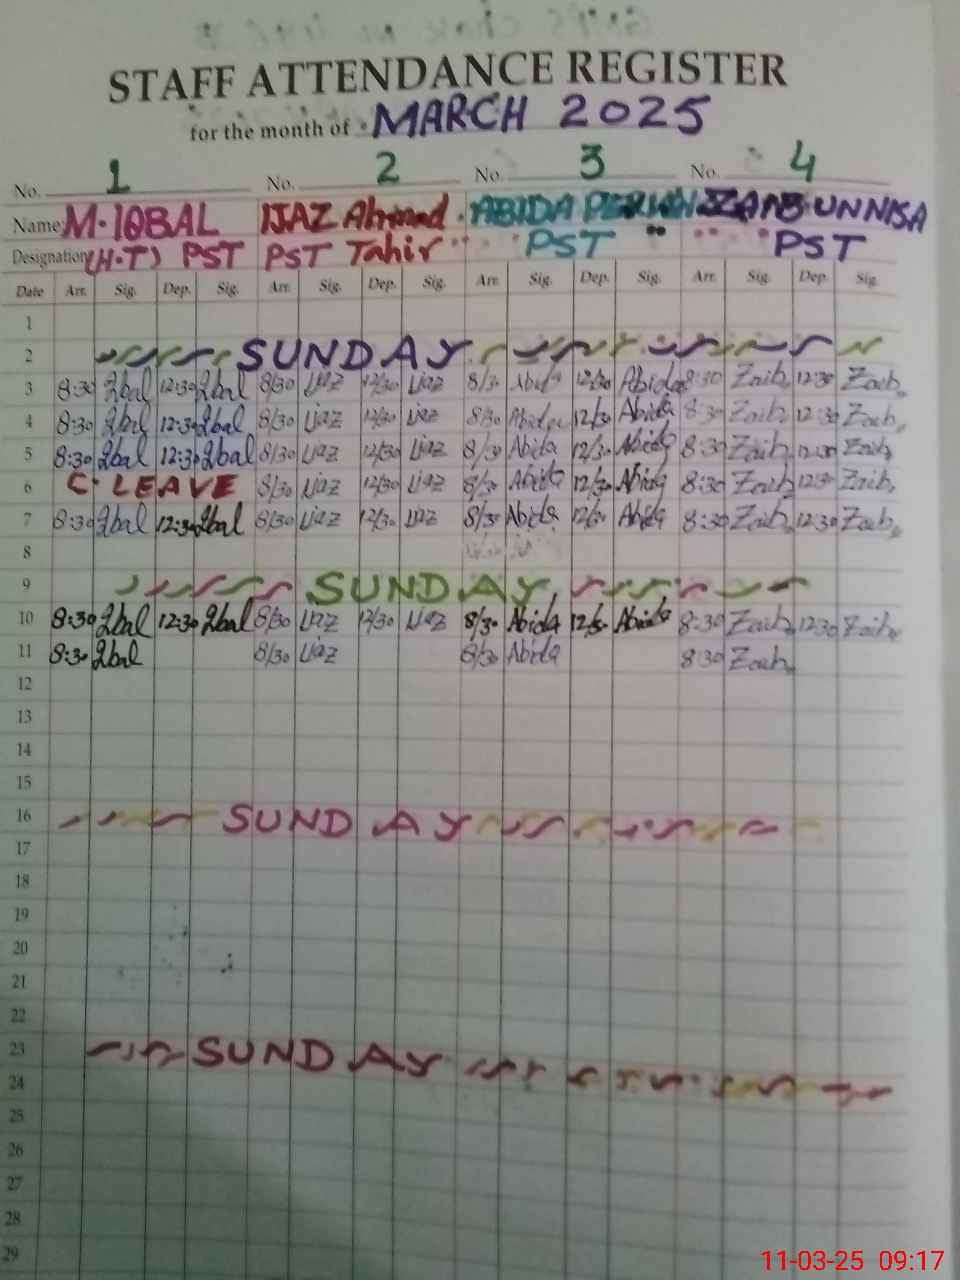 STAFF ATTENDANCE REGISTER
for the month of MARCH 2025
No. 1 No. 2 No. 3 No. 4
Name M. IQBAL IJAZ Ahmad ABIDA ZAIB UNNISA
Designation (H.T) PST PST Tahir PST PST
Date Arr. Sig. Dep. Sig. Arr. Sig. Dep. Sig. Arr. Sig. Dep. Sig. Arr. Sig. Dep. Sig.
1
2 SUNDAY
3 8:30 Iqbal 12:30 Iqbal 8/30 Ijaz 12/30 Ijaz 8/30 Abida 12/30 Abida 8:30 Zaib 12:30 Zaib
4 8:30 Iqbal 12:30 Iqbal 8/30 Ijaz 12/30 Ijaz 8/30 Abida 12/30 Abida 8:30 Zaib 12:30 Zaib
5 8:30 Iqbal 12:30 Iqbal 8/30 Ijaz 12/30 Ijaz 8/30 Abida 12/30 Abida 8:30 Zaib 12:30 Zaib
6 C. LEAVE 8/30 Ijaz 12/30 Ijaz 8/30 Abida 12/30 Abida 8:30 Zaib 12:30 Zaib
7 8:30 Iqbal 12:30 Iqbal 8/30 Ijaz 12/30 Ijaz 8/30 Abida 12/30 Abida 8:30 Zaib 12:30 Zaib
8
9 SUNDAY
10 8:30 Iqbal 12:30 Iqbal 8/30 Ijaz 12/30 Ijaz 8/30 Abida 12/30 Abida 8:30 Zaib 12:30 Zaib
11 8:30 Iqbal 8/30 Ijaz 8/30 Abida 8:30 Zaib
12
13
14
15
16 SUNDAY
17
18
19
20
21
22
23 SUNDAY
24
25
26
27
28
29
11-03-25 09:17